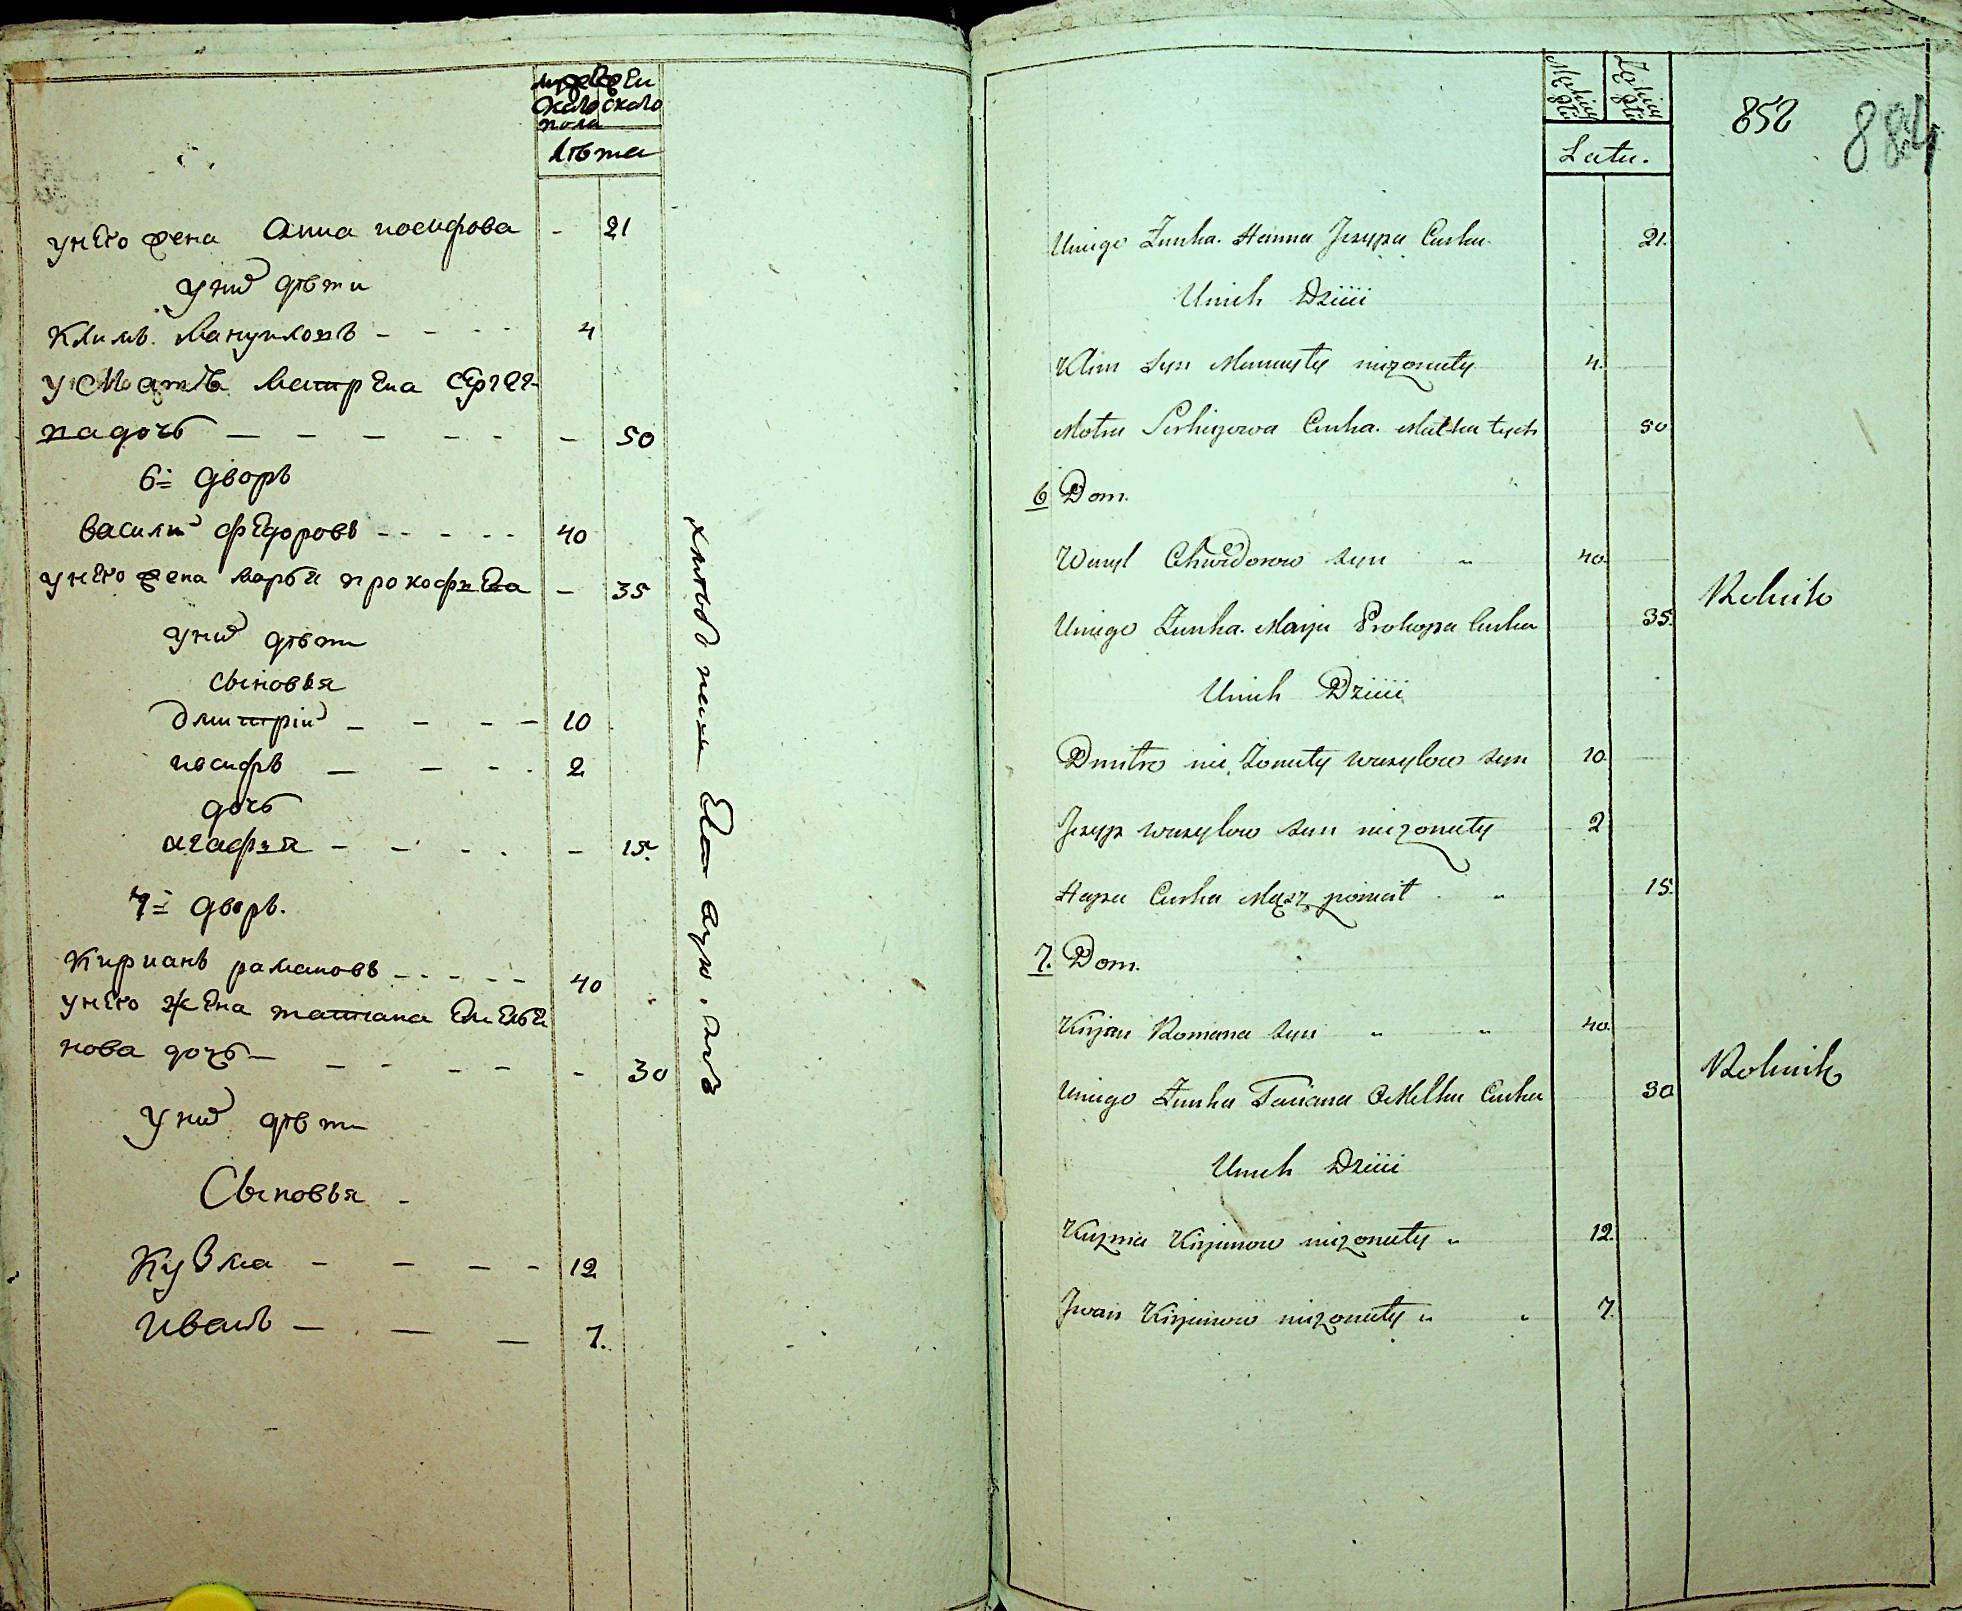 мужескаго пола
женскаго
лѣта
у него жена Анна иосифова - 21
у них дѣти
Климъ. Мануиловъ - - - - 4
у с Мать Матрена Сергее-
на дочь - - - - - - 50
6й дворъ
Василий федоровъ - - - - - 40
у него жена Марья прокофьева - 35
у них дѣти
сыновья
Дмитрій - - - - 10
иосифъ - - - - 2
дочь
агафья - - - - - 15.
7й дворъ.
Кириянъ рамановъ - - - - - 40
у него жена татіана Емелья
нова дочь - - - - - - 30
у них дѣти
Сыновья -
Кузма - - - - 12
Иванъ - - - 7.
Męskiey płci
Żeńskiey płci
Latu.
852
884
Uniego Żunka. Hanna Jezypa Curka. 21.
Unich Dziiii
Klim Syn Manuyły nieżonaty 4.
Motra Serhiyowa Curka. Matka tych 50
6 Dom.
Wasyl Chwedorow syn " 40.
Rolnik
Uniego Żunka. Marja Prokopa Curka 35.
Unich Dziiii
Dmitro nie Żonaty wasylow syn 10.
Jezyp wasylow syn nieżonaty 2
Hapa Curka 15.
7. Dom.
Kirjan Romana syn " " 40.
Rolnik
Uniego Żunka Taciana OMelka Curka 30
Unich Dziiii
Kuzma Kirjanow nieżonaty " 12.
Jwan Kirjanow nieżonaty " " 7.